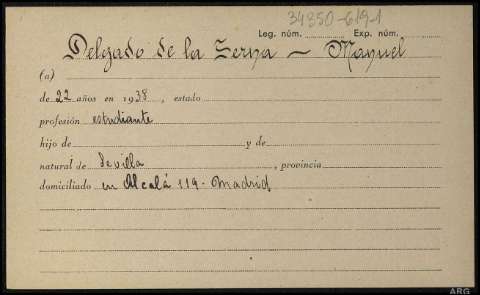 34350-619-1
Leg. núm. Exp. núm.
Delgado de la Serna — Manuel
(a)
de 22 años en 1938, estado
profesión estudiante
hijo de y de
natural de Sevilla, provincia
domiciliado en Alcalá 119 - Madrid
ARG